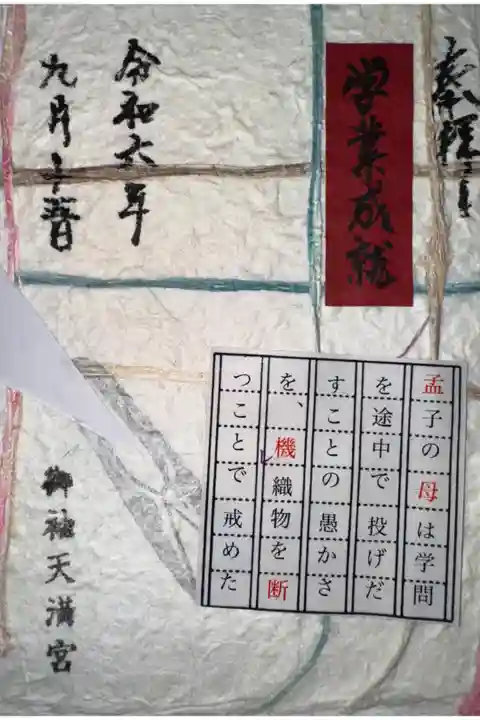 奉拝
学業成就
令和六年
九月十三日
孟子の母は学問
を途中で投げだ
すことの愚かさ
を、機織物を断
つことで戒めた
レ
御袖天満宮